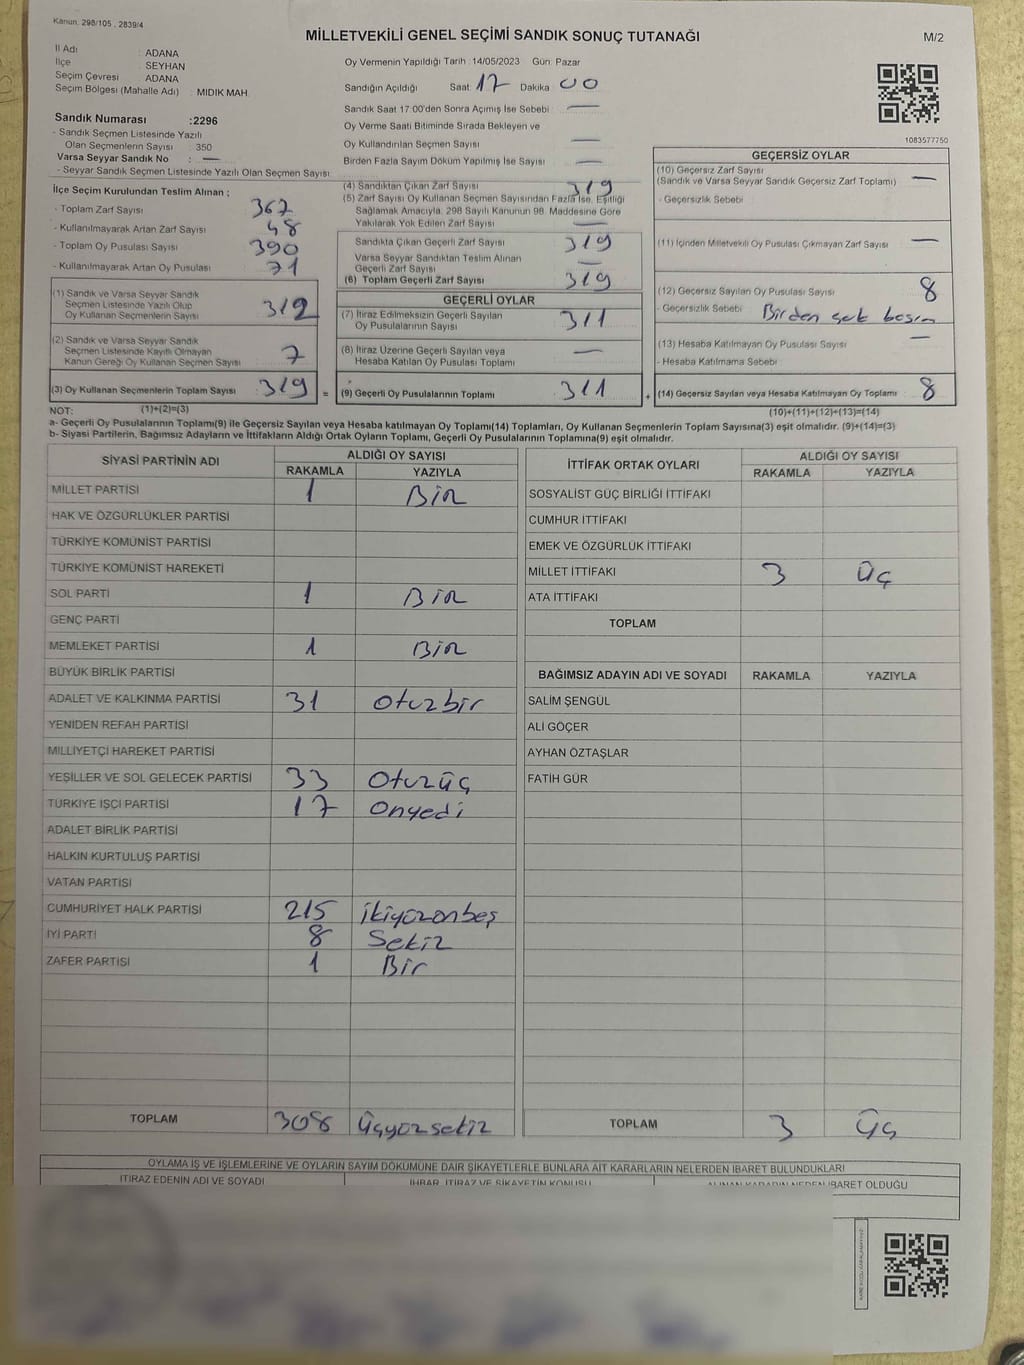 Kanun. 298/105 , 2839/4
MİLLETVEKİLİ GENEL SEÇİMİ SANDIK SONUÇ TUTANAĞI
M/2
İl Adı : ADANA
İlçe SEYHAN
Seçim Çevresi ADANA
Seçim Bölgesi (Mahalle Adı) : MIDIK MAH.
Oy Vermenin Yapıldığı Tarih : 14/05/2023 Gün: Pazar
Sandığın Açıldığı Saat: 17 Dakika 00
Sandık Saat 17:00'den Sonra Açımış İse Sebebi : —
Oy Verme Saati Bitiminde Sırada Bekleyen ve
Oy Kullandırılan Seçmen Sayısı : —
Birden Fazla Sayım Döküm Yapılmış İse Sayısı : —
1083577750
Sandık Numarası :2296
- Sandık Seçmen Listesinde Yazılı
Olan Seçmenlerin Sayısı : 350
Varsa Seyyar Sandık No : —
- Seyyar Sandık Seçmen Listesinde Yazılı Olan Seçmen Sayısı:
İlçe Seçim Kurulundan Teslim Alınan ;
- Toplam Zarf Sayısı 367
- Kullanılmayarak Artan Zarf Sayısı 48
- Toplam Oy Pusulası Sayısı 390
- Kullanılmayarak Artan Oy Pusulası 71
(1) Sandık ve Varsa Seyyar Sandık
Seçmen Listesinde Yazılı Olup
Oy Kullanan Seçmenlerin Sayısı 312
(2) Sandık ve Varsa Seyyar Sandık
Seçmen Listesinde Kayıtlı Olmayan
Kanun Gereği Oy Kullanan Seçmen Sayısı 7
(3) Oy Kullanan Seçmenlerin Toplam Sayısı 319 =
(4) Sandıktan Çıkan Zarf Sayısı 319
(5) Zarf Sayısı Oy Kullanan Seçmen Sayısından Fazla İse, Eşitliği
Sağlamak Amacıyla, 298 Sayılı Kanunun 98. Maddesine Göre
Yakılarak Yok Edilen Zarf Sayısı —
Sandıkta Çıkan Geçerli Zarf Sayısı 319
Varsa Seyyar Sandıktan Teslim Alınan
Geçerli Zarf Sayısı —
(6) Toplam Geçerli Zarf Sayısı 319
GEÇERLİ OYLAR
(7) İtiraz Edilmeksizin Geçerli Sayılan
Oy Pusulalarının Sayısı 311
(8) İtiraz Üzerine Geçerli Sayılan veya
Hesaba Katılan Oy Pusulası Toplamı —
(9) Geçerli Oy Pusulalarının Toplamı 311 +
GEÇERSİZ OYLAR
(10) Geçersiz Zarf Sayısı
(Sandık ve Varsa Seyyar Sandık Geçersiz Zarf Toplamı) —
- Geçersizlik Sebebi
(11) İçinden Milletvekili Oy Pusulası Çıkmayan Zarf Sayısı —
(12) Geçersiz Sayılan Oy Pusulası Sayısı 8
- Geçersizlik Sebebi Birden çok basım
(13) Hesaba Katılmayan Oy Pusulası Sayısı —
- Hesaba Katılmama Sebebi
(14) Geçersiz Sayılan veya Hesaba Katılmayan Oy Toplamı 8
NOT: (1)+(2)=(3) (10)+(11)+(12)+(13)=(14)
a- Geçerli Oy Pusulalarının Toplamı(9) ile Geçersiz Sayılan veya Hesaba katılmayan Oy Toplamı(14) Toplamları, Oy Kullanan Seçmenlerin Toplam Sayısına(3) eşit olmalıdır. (9)+(14)=(3)
b- Siyasi Partilerin, Bağımsız Adayların ve İttifakların Aldığı Ortak Oyların Toplamı, Geçerli Oy Pusulalarının Toplamına(9) eşit olmalıdır.
SİYASİ PARTİNİN ADI ALDIĞI OY SAYISI
RAKAMLA YAZIYLA
MİLLET PARTİSİ 1 Bir
HAK VE ÖZGÜRLÜKLER PARTİSİ
TÜRKİYE KOMÜNİST PARTİSİ
TÜRKİYE KOMÜNİST HAREKETİ
SOL PARTİ 1 Bir
GENÇ PARTİ
MEMLEKET PARTİSİ 1 Bir
BÜYÜK BİRLİK PARTİSİ
ADALET VE KALKINMA PARTİSİ 31 Otuzbir
YENİDEN REFAH PARTİSİ
MİLLİYETÇİ HAREKET PARTİSİ
YEŞİLLER VE SOL GELECEK PARTİSİ 33 Otuzüç
TÜRKİYE İŞÇİ PARTİSİ 17 Onyedi
ADALET BİRLİK PARTİSİ
HALKIN KURTULUŞ PARTİSİ
VATAN PARTİSİ
CUMHURİYET HALK PARTİSİ 215 İkiyüzonbeş
İYİ PARTİ 8 Sekiz
ZAFER PARTİSİ 1 Bir
TOPLAM 308 Üçyüzsekiz
İTTİFAK ORTAK OYLARI ALDIĞI OY SAYISI
RAKAMLA YAZIYLA
SOSYALİST GÜÇ BİRLİĞİ İTTİFAKI
CUMHUR İTTİFAKI
EMEK VE ÖZGÜRLÜK İTTİFAKI
MİLLET İTTİFAKI 3 Üç
ATA İTTİFAKI
TOPLAM
BAĞIMSIZ ADAYIN ADI VE SOYADI RAKAMLA YAZIYLA
SALİM ŞENGÜL
ALİ GÖÇER
AYHAN ÖZTAŞLAR
FATİH GÜR
TOPLAM 3 Üç
OYLAMA İŞ VE İŞLEMLERİNE VE OYLARIN SAYIM DÖKÜMÜNE DAİR ŞİKAYETLERLE BUNLARA AİT KARARLARIN NELERDEN İBARET BULUNDUKLARI
İTİRAZ EDENİN ADI VE SOYADI İHBAR, İTİRAZ VE ŞİKAYETİN KONUSU ALINAN KARARIN NEDEN İBARET OLDUĞU